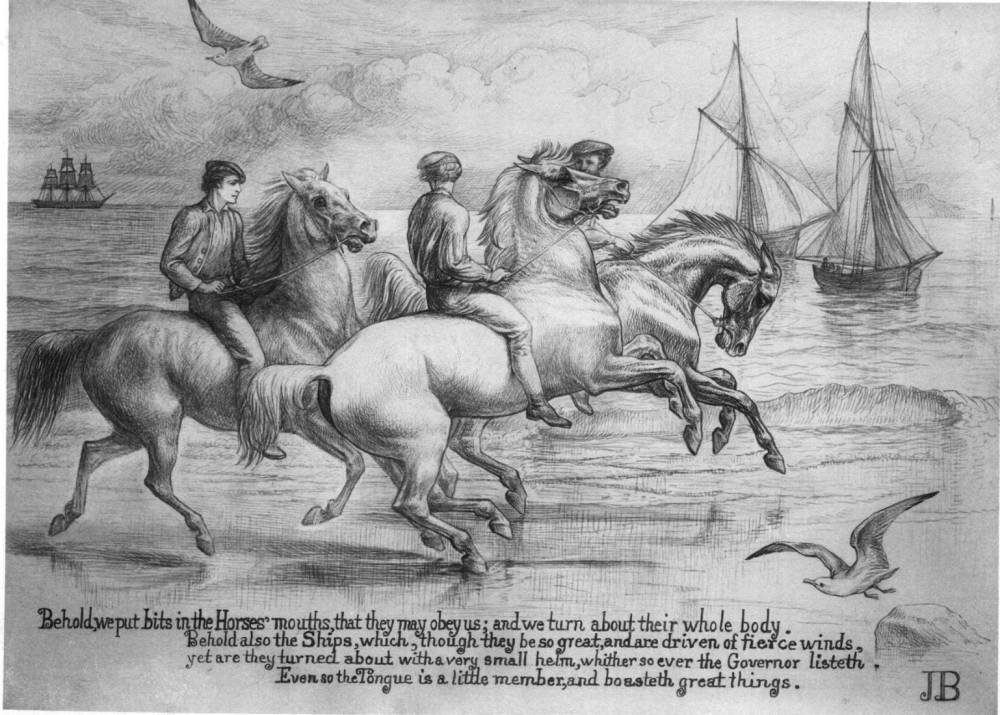 Behold, we put bits in the Horses' mouths, that they may obey us; and we turn about their whole body.
Behold also the Ships, which, though they be so great, and are driven of fierce winds,
yet are they turned about with a very small helm, whither so ever the Governor listeth.
Even so the Tongue is a little member, and boasteth great things.
JB